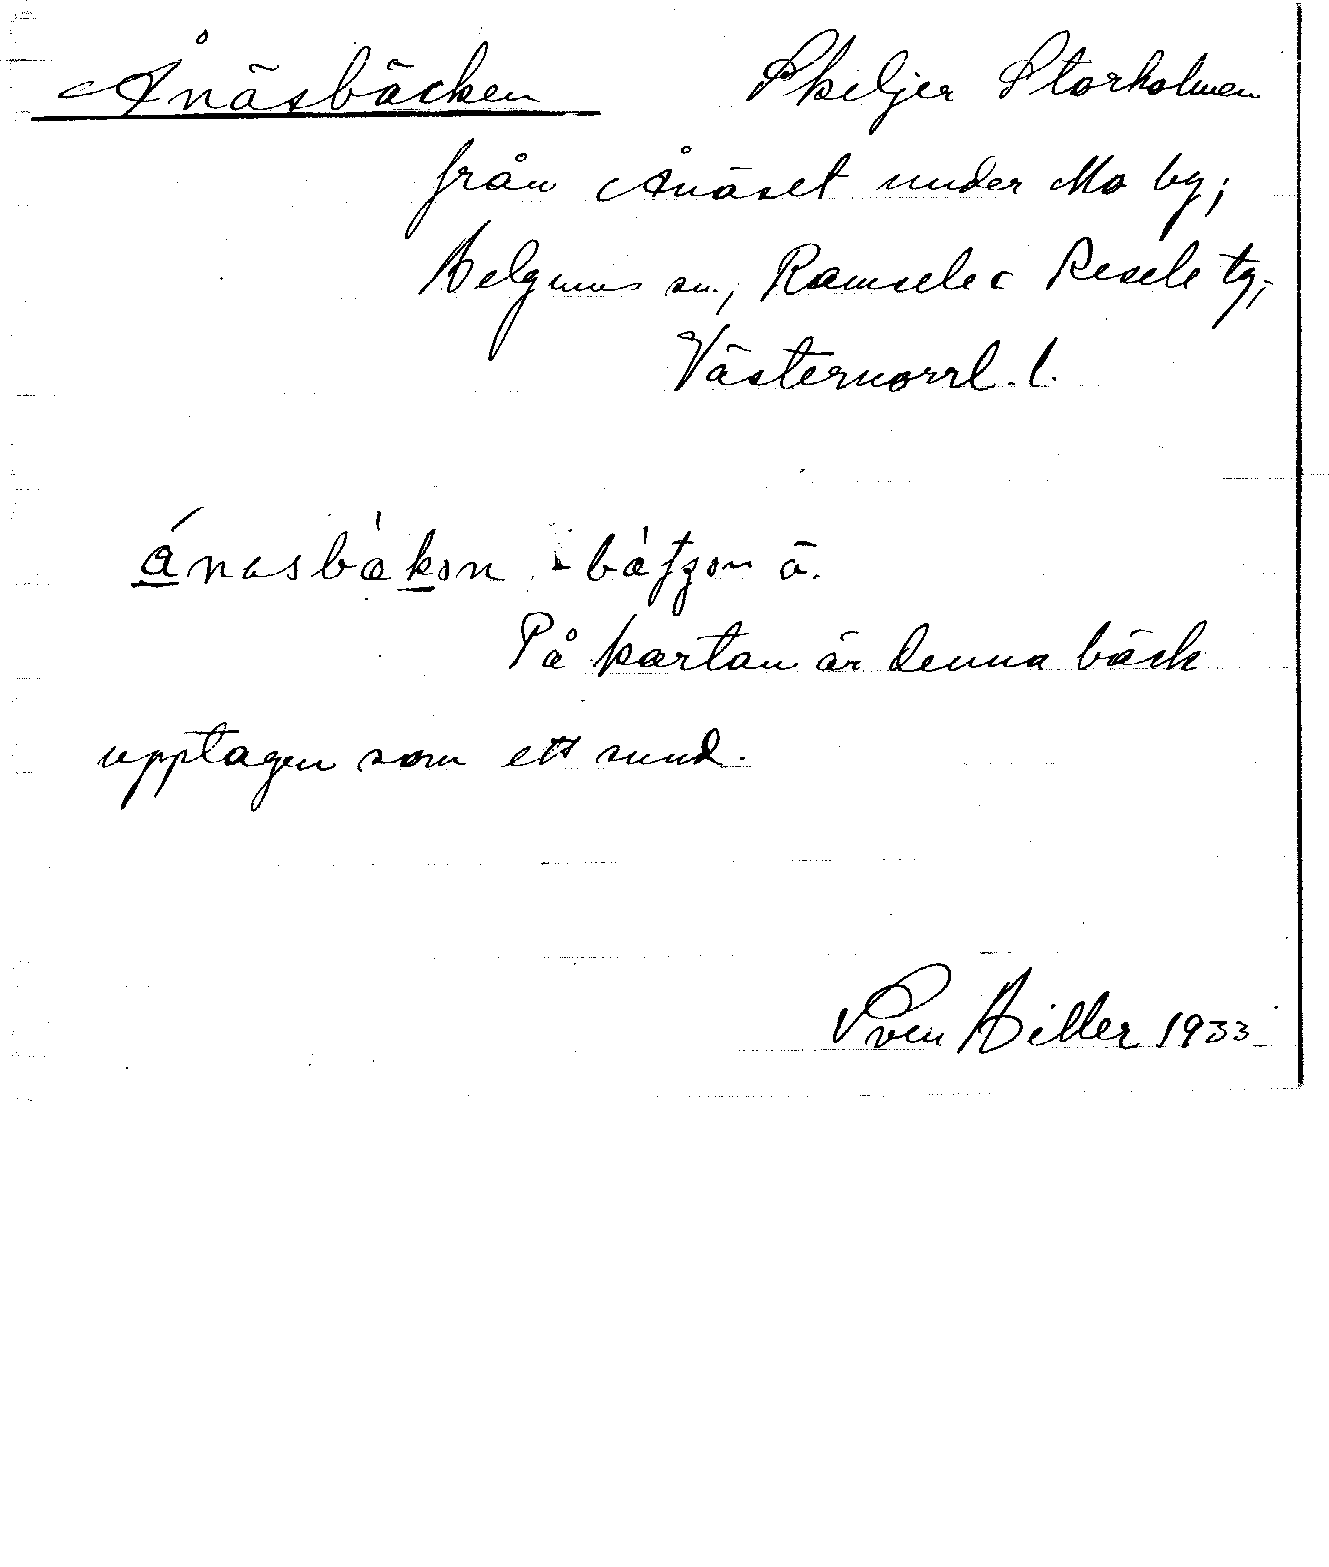 Ånäsbäcken Skiljer Storholmen
från Ånäset under Mo by;
Helgums sn., Ramsele o Resele tg,
Västernorrl. l.
På kartan är denna bäck
upptagen som ett sund.
Sven Hiller 1933